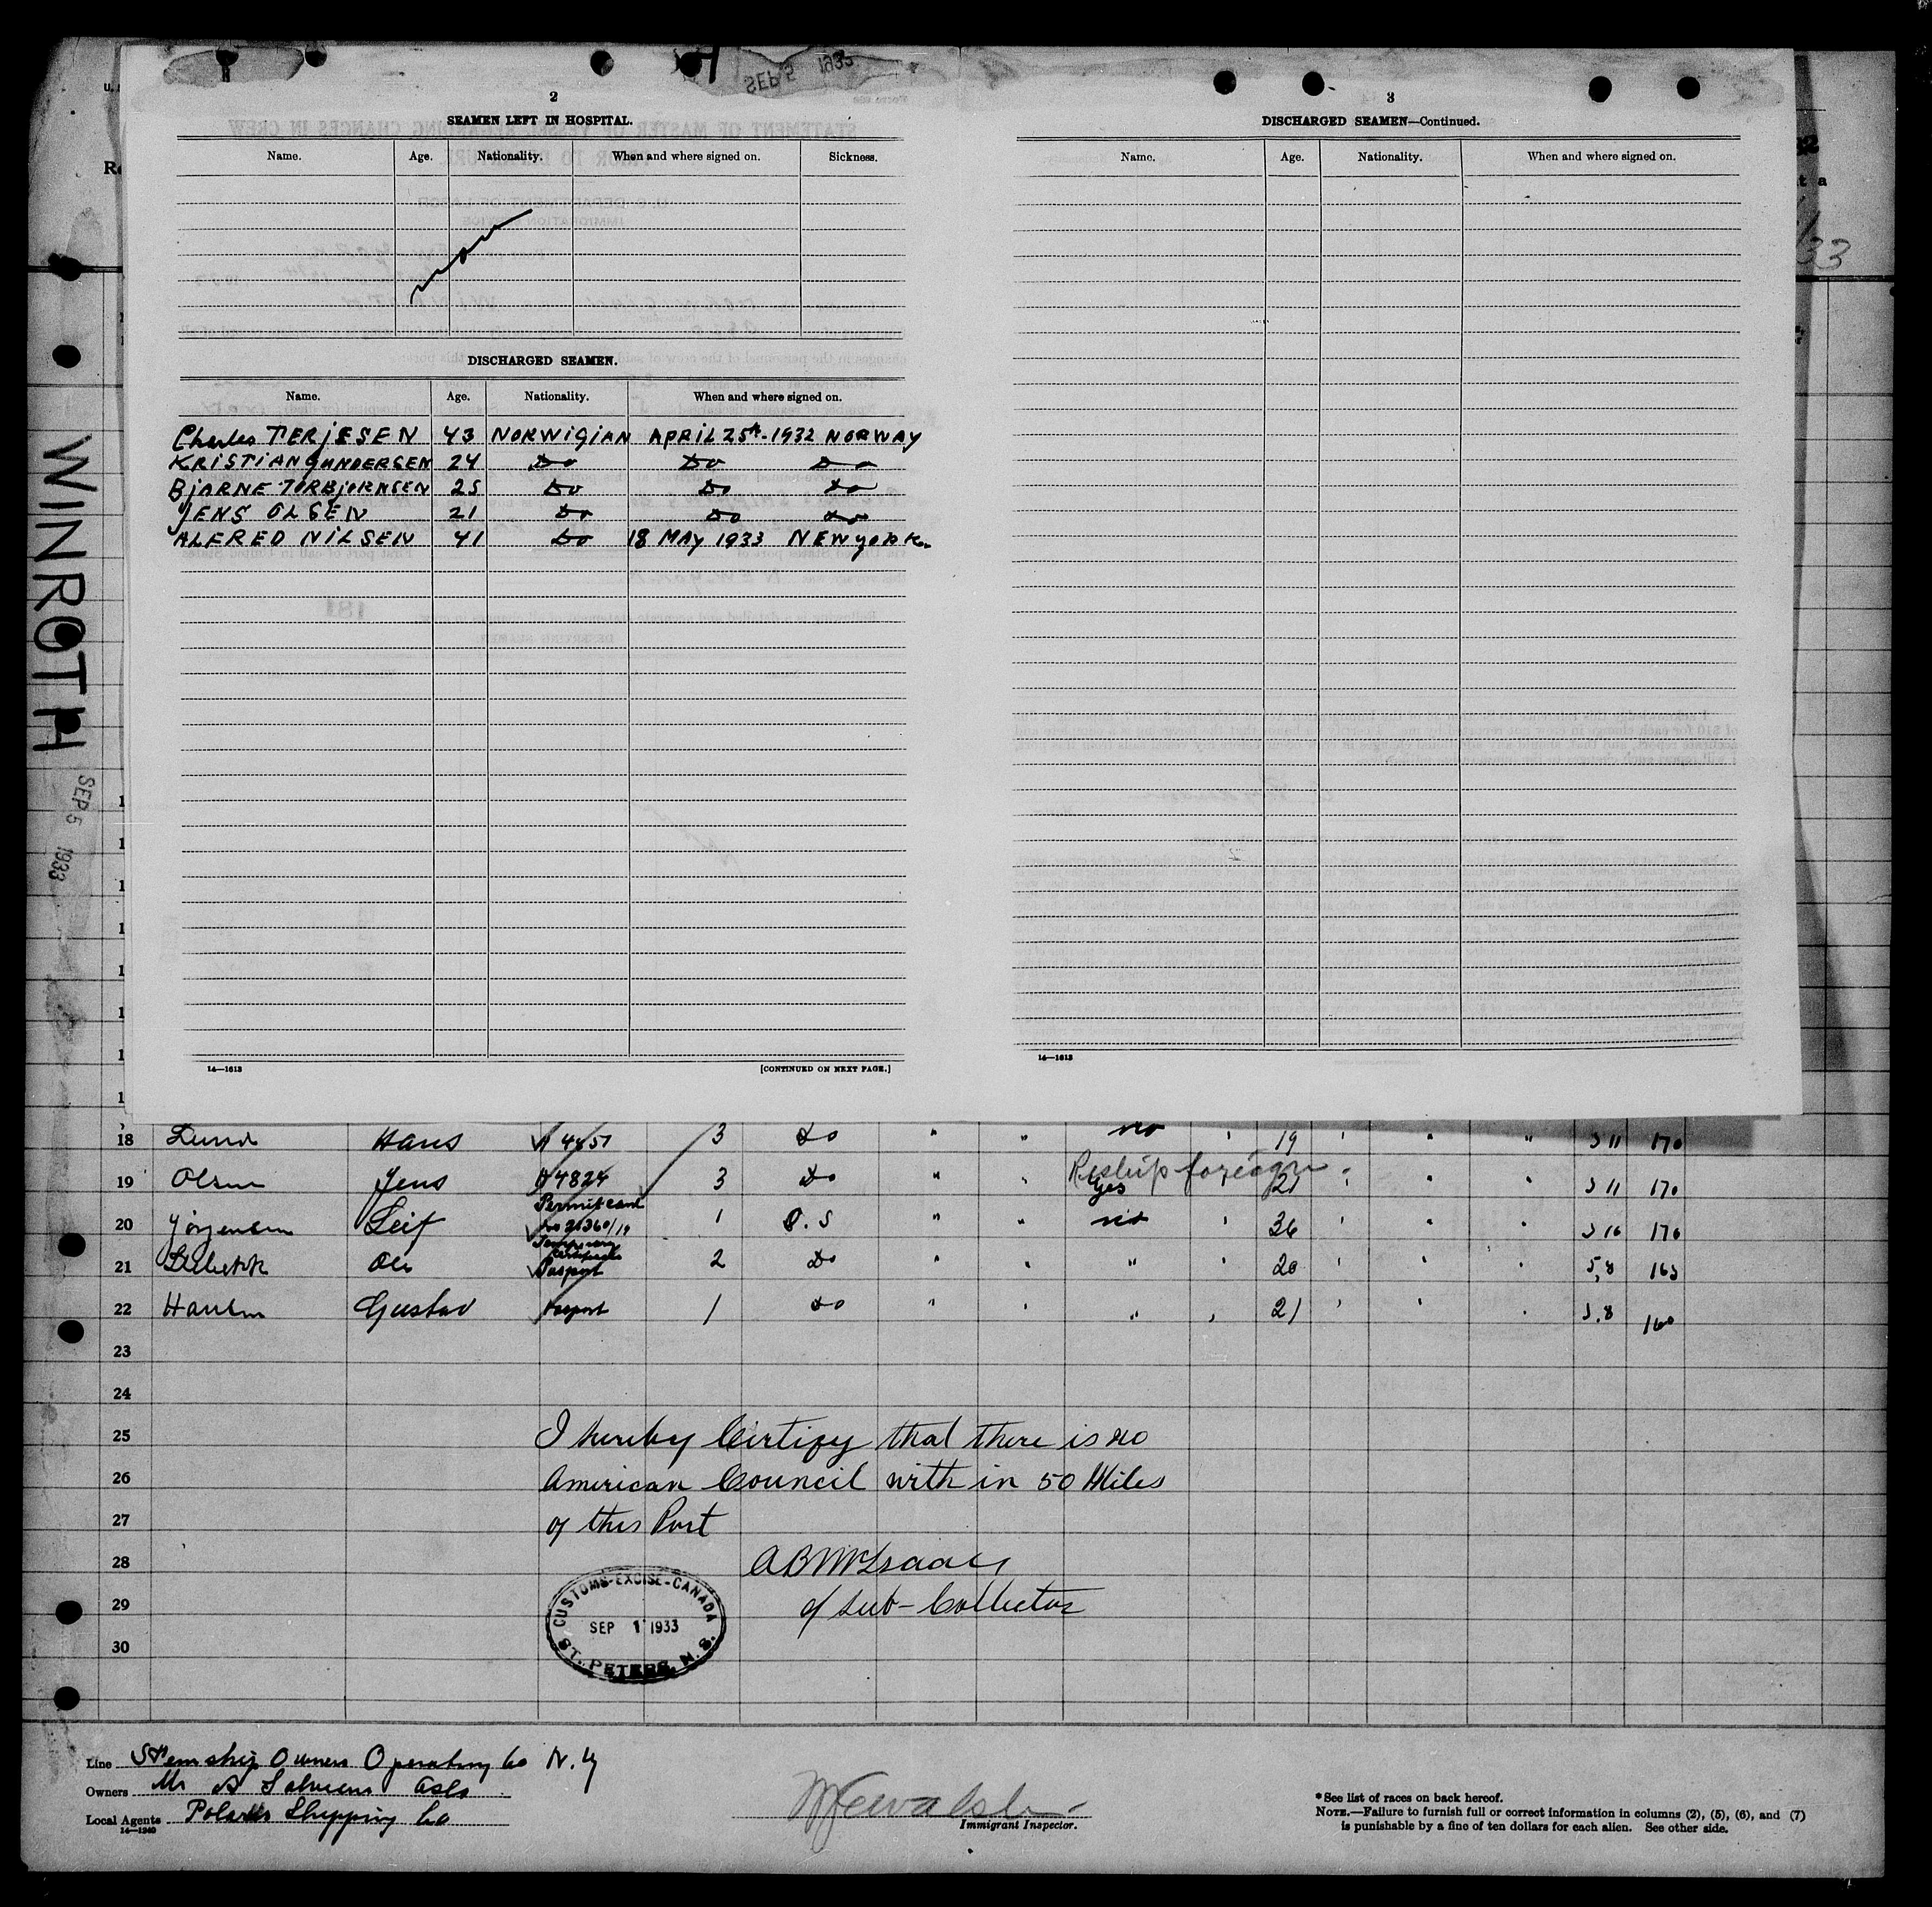 SEP 5 1933
2
SEAMEN LEFT IN HOSPITAL.
Name. Age. Nationality. When and where signed on. Sickness.
none
DISCHARGED SEAMEN.
Name. Age. Nationality. When and where signed on.
Charles TERJESEN 43 NORWIGIAN APRIL 25th-1932 NORWAY
KRISTIAN GUNDERSEN 24 Do Do Do
BJARNE TORBJORNSEN 25 Do Do Do
JENS OLSEN 21 Do Do Do
ALFRED NILSEN 41 Do 18 MAY 1933 NEW york
14—1613 [CONTINUED ON NEXT PAGE.]
3
DISCHARGED SEAMEN—Continued.
Name. Age. Nationality. When and where signed on.
14—1613
33
WINROTH
SEP 5 1933
18 Lund Hans 3 Do " " no 19 " " 5 11 170
19 Olsen Jens 4824 3 Do " " Reship foreign Yes 21 " " 5 11 170
20 Leif Permit card 1 O.S " " no 36 " 170
21 Ole Pasport 2 Do " " " 20 " 5,8 165
22 Gustav Pasport 1 Do " " " 21 " 5.8 160
23
24
25 I hereby Certify that there is no
26 American Council with in 50 Miles
27 of this Port
28 A B McIsaac
29 Sub-Collector
30
CUSTOMS-EXCISE-CANADA
SEP 1 1933
ST. PETERS, N.S.
Line Stemship Owners Operating Co N.Y
Owners Mr
Local Agents Polarus Shipping Co
14—1240
Immigrant Inspector.
*See list of races on back hereof.
NOTE.—Failure to furnish full or correct information in columns (2), (5), (6), and (7)
is punishable by a fine of ten dollars for each alien. See other side.